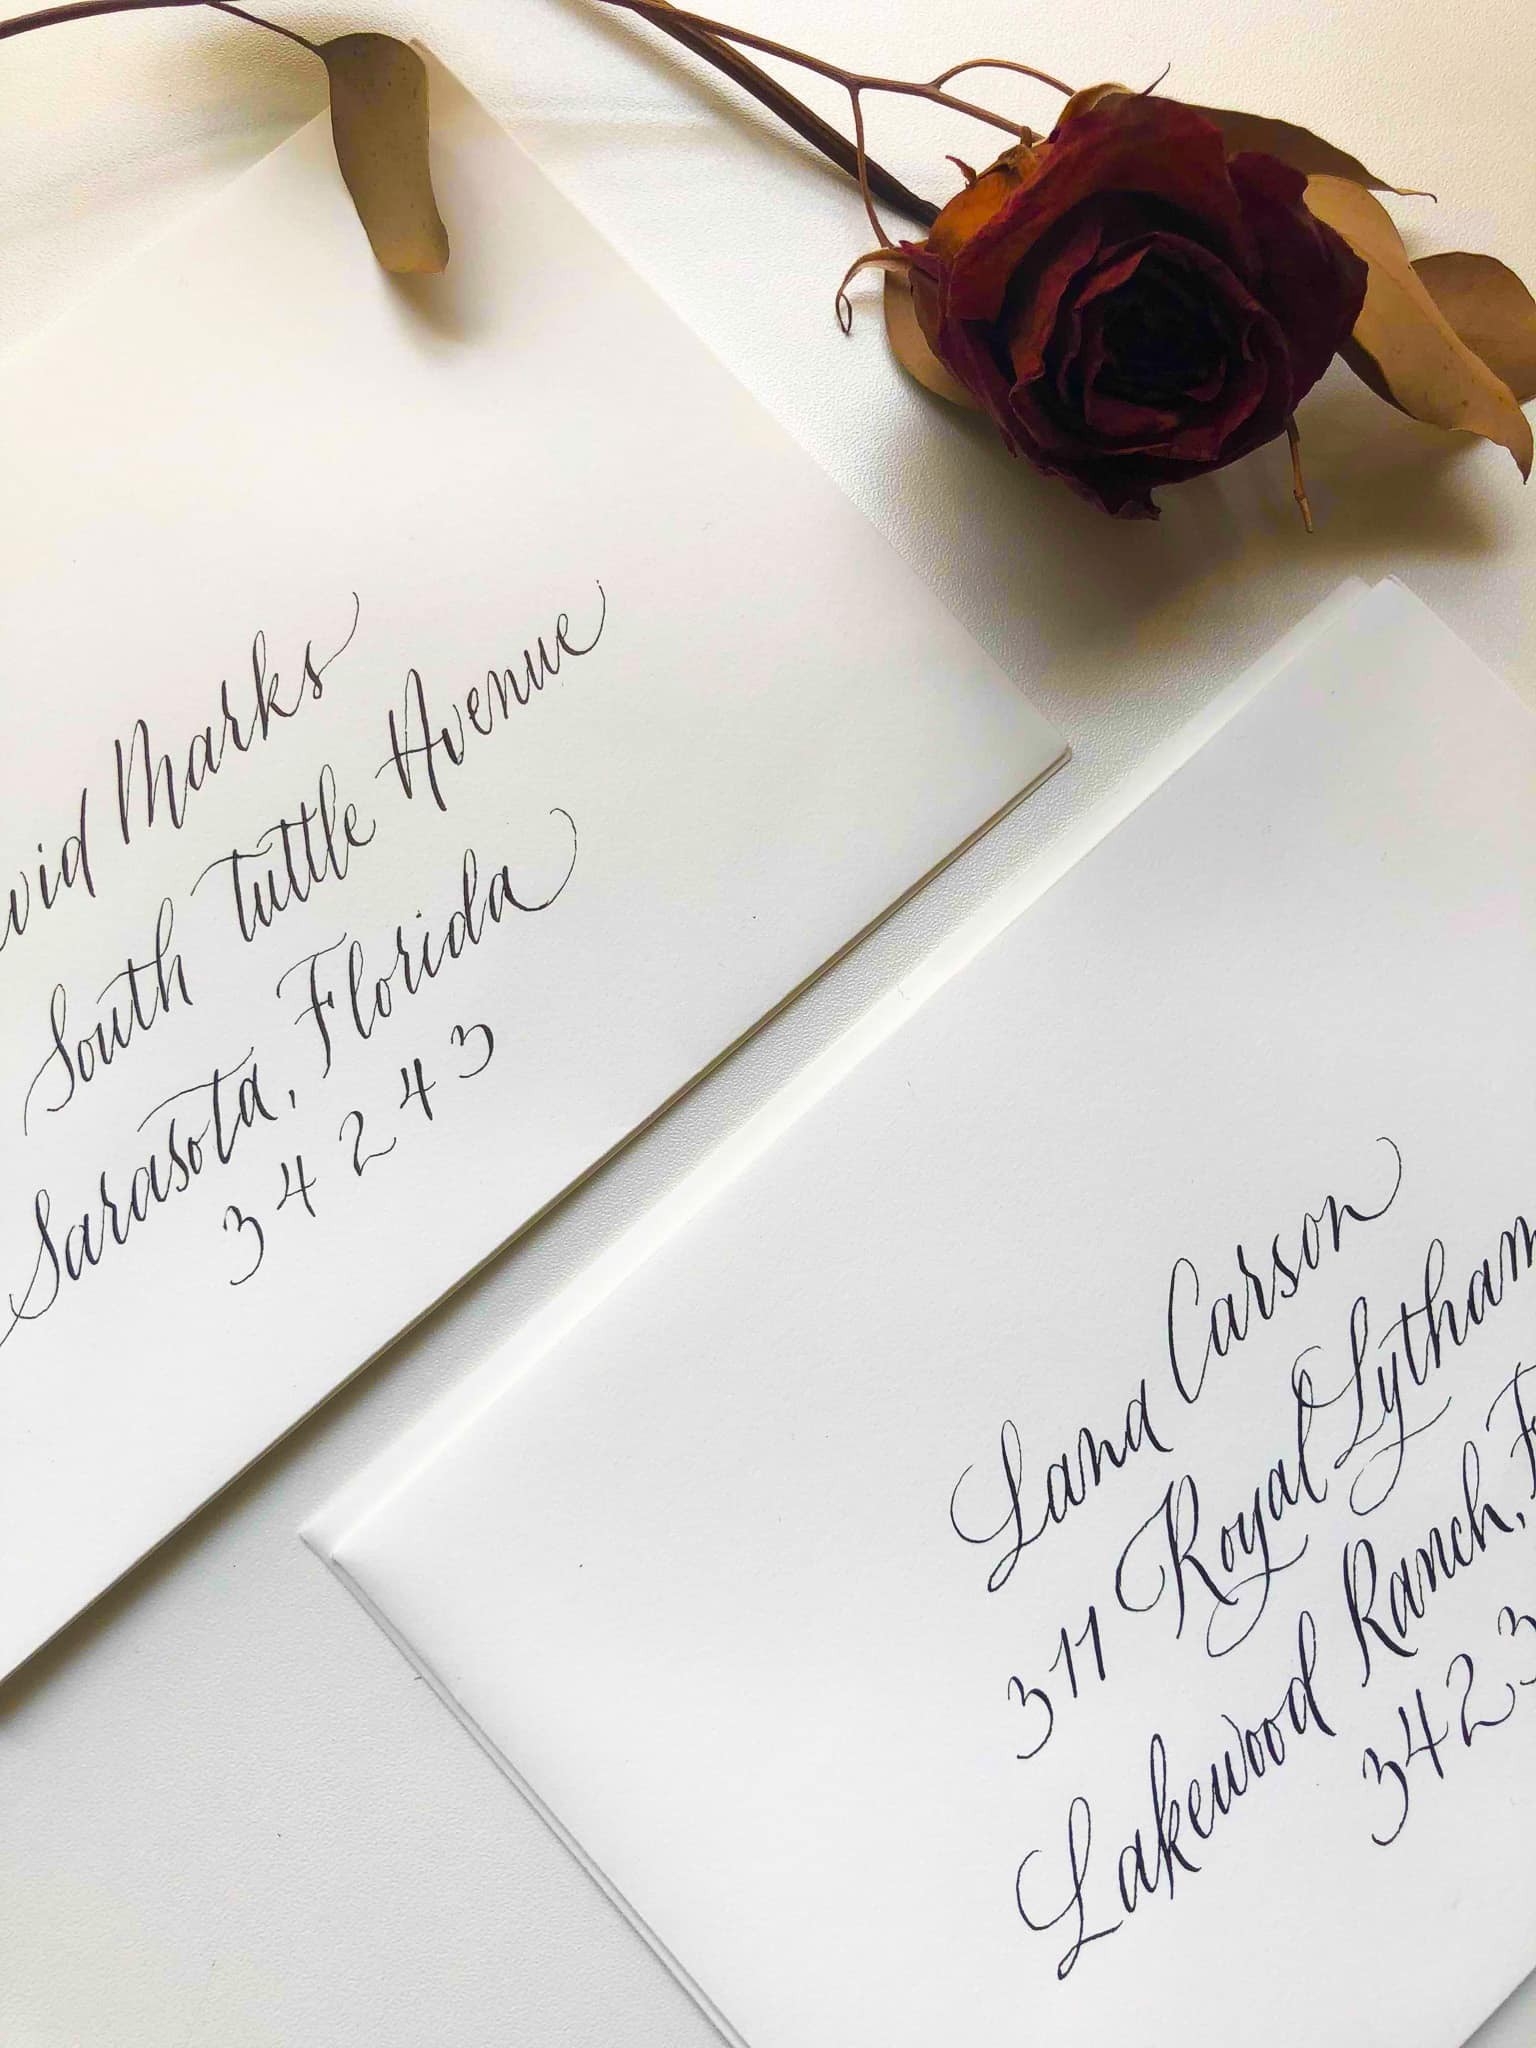 vid Marks
South Tuttle Avenue
Sarasota, Florida
34243
Lana Carson
311 Royal Lytham
Lakewood Ranch, F
3423